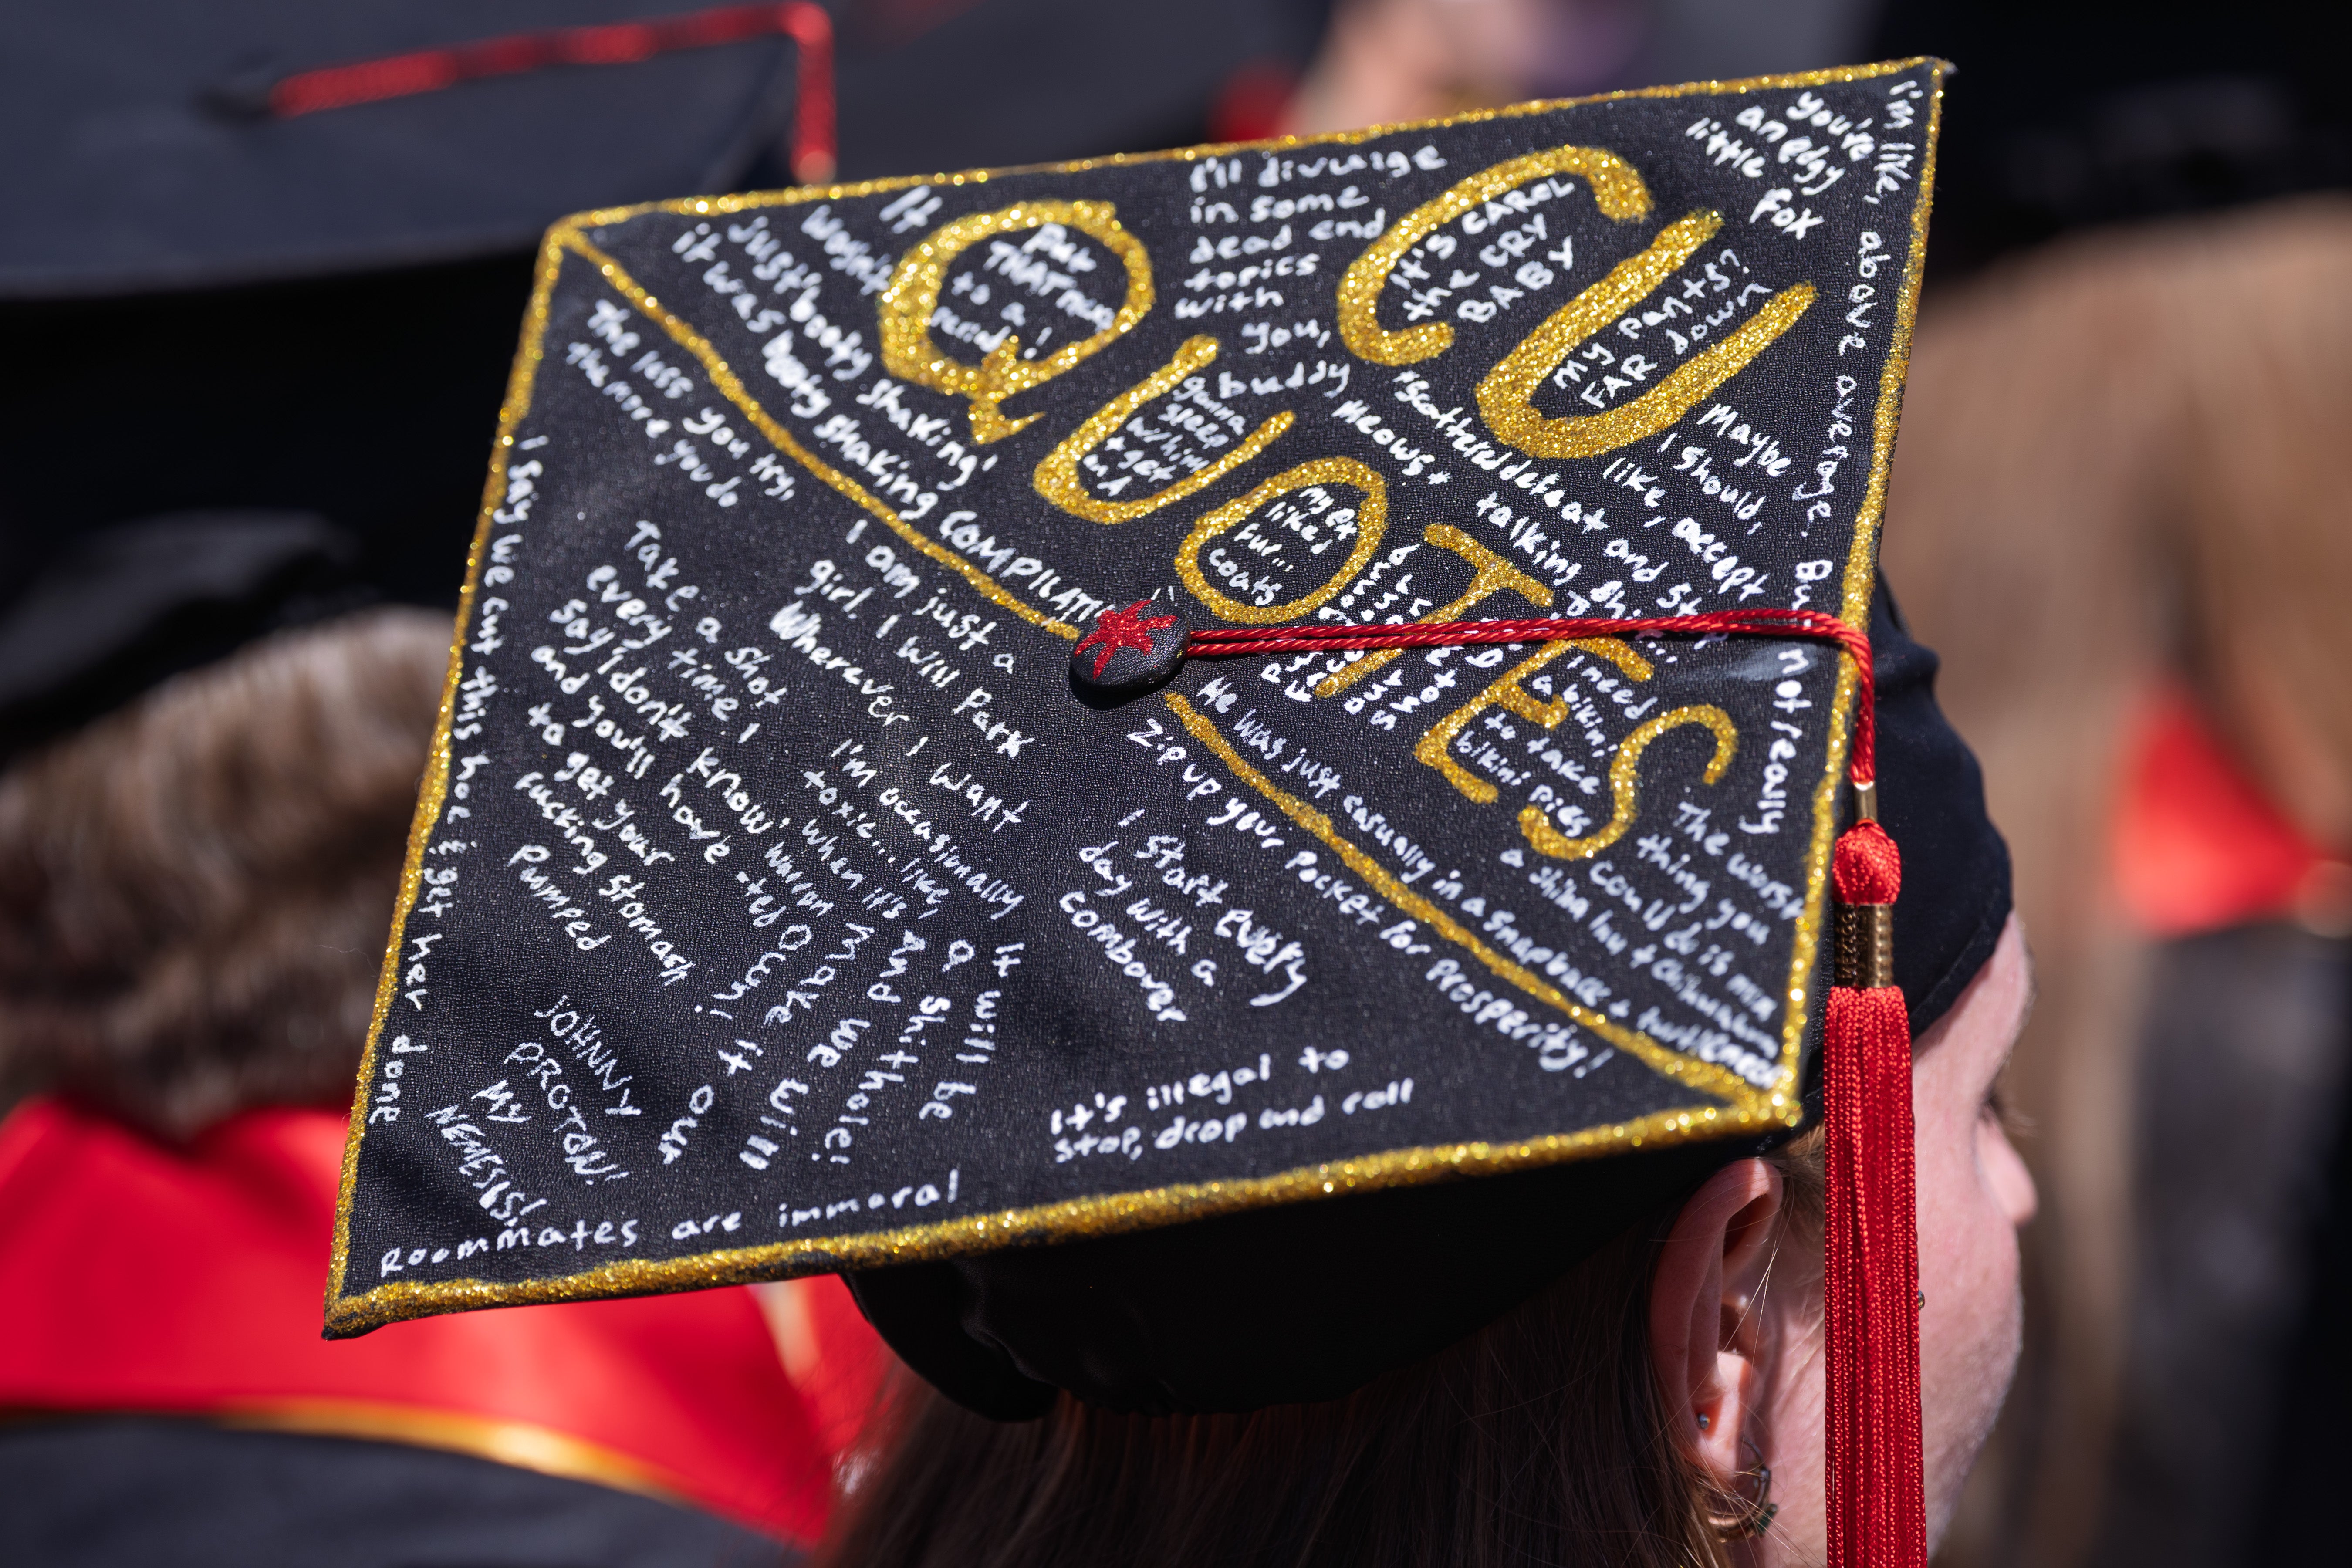 CU
QUOTES
you're
an edgy
little
fox
I'm like, above average. But not really
It's CAROL
the CRY
BABY
my pants?
FAR down
Maybe
I should,
like, accept
defeat and
I'll divulge
in some
dead end
topics
with
you,
buddy
Put
THAT
to a
!
It
wasn't
just 'booty shaking'
it was booty shaking COMPILATI
gonna
speed
+ get
my ex
liked
fur...
coats
Meows +
talking
I need
a bikini
to take
bikini pics
The worst
thing you
could do is
He was just casually in a snapback +
The less you try,
the more you do
I say we cut this hoe & get her done
I am just a
girl. I will Park
Wherever I want
Take a shot
every time I
say 'I don't know'
and you'll have
to get your
fucking stomach
Pumped
I'm occasionally
toxic... like,
when it's
warran
-ted
It will be
a shithole!
And
Make we win
our own!
It
JOHNNY
PROTON!
MY
NEMESIS!
Roommates are immoral
Zip up your pocket for prosperity!
I start every
day with a
combover
It's illegal to
stop, drop and roll